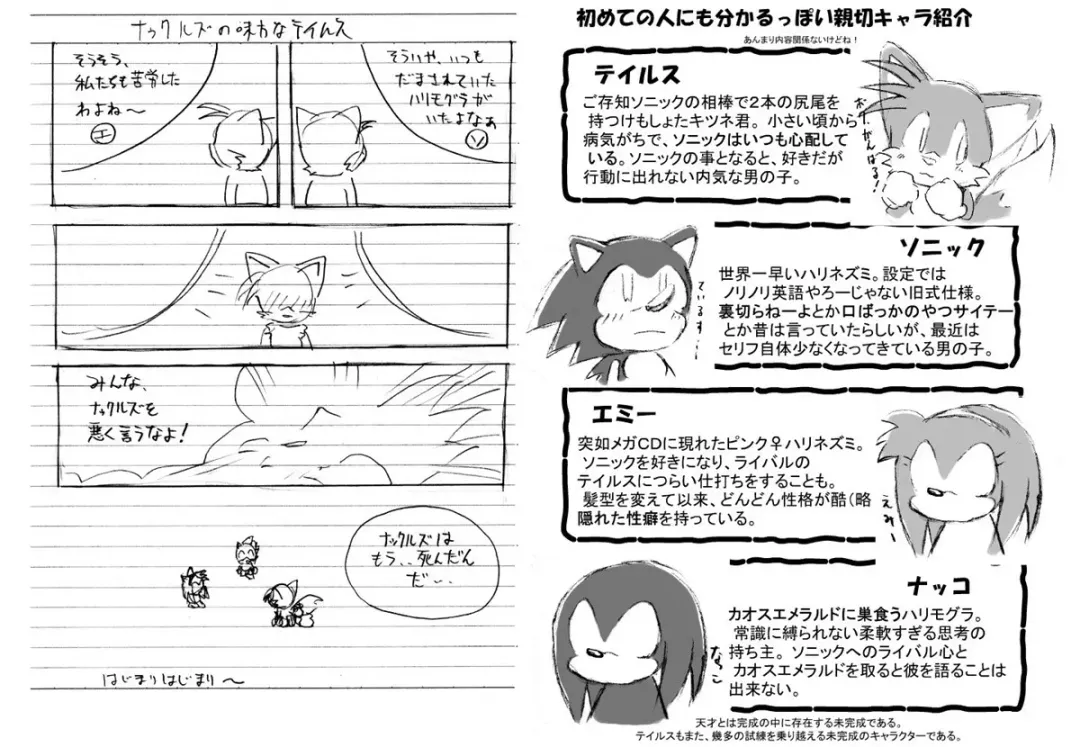 ナックルズの味方なテイルス
そういや、いつも
だまされていた
ハリモグラが
いたよなぁ
ソ
そうそう、
私たちも苦労した
わよね～
エ
みんな、
ナックルズを
悪く言うなよ！
ナックルズは
もう、、死んだん
だ～、、
はじまりはじまり～
初めての人にも分かるっぽい親切キャラ紹介
あんまり内容関係ないけどね！
テイルス
ご存知ソニックの相棒で２本の尻尾を
持つけもしょたキツネ君。小さい頃から
病気がちで、ソニックはいつも心配して
いる。ソニックの事となると、好きだが
行動に出れない内気な男の子。
ソニック
世界一早いハリネズミ。設定では
ノリノリ英語やろーじゃない旧式仕様。
裏切らねーよとか口ばっかのやつサイテー
とか昔は言っていたらしいが、最近は
セリフ自体少なくなってきている男の子。
ているす…
エミー
突如メガCDに現れたピンク♀ハリネズミ。
ソニックを好きになり、ライバルの
テイルスにつらい仕打ちをすることも。
髪型を変えて以来、どんどん性格が酷（略
隠れた性癖を持っている。
えみー
ナッコ
カオスエメラルドに巣食うハリモグラ。
常識に縛られない柔軟すぎる思考の
持ち主。ソニックへのライバル心と
カオスエメラルドを取ると彼を語ることは
出来ない。
なっこ
天才とは完成の中に存在する未完成である。
テイルスもまた、幾多の試練を乗り越える未完成のキャラクターである。